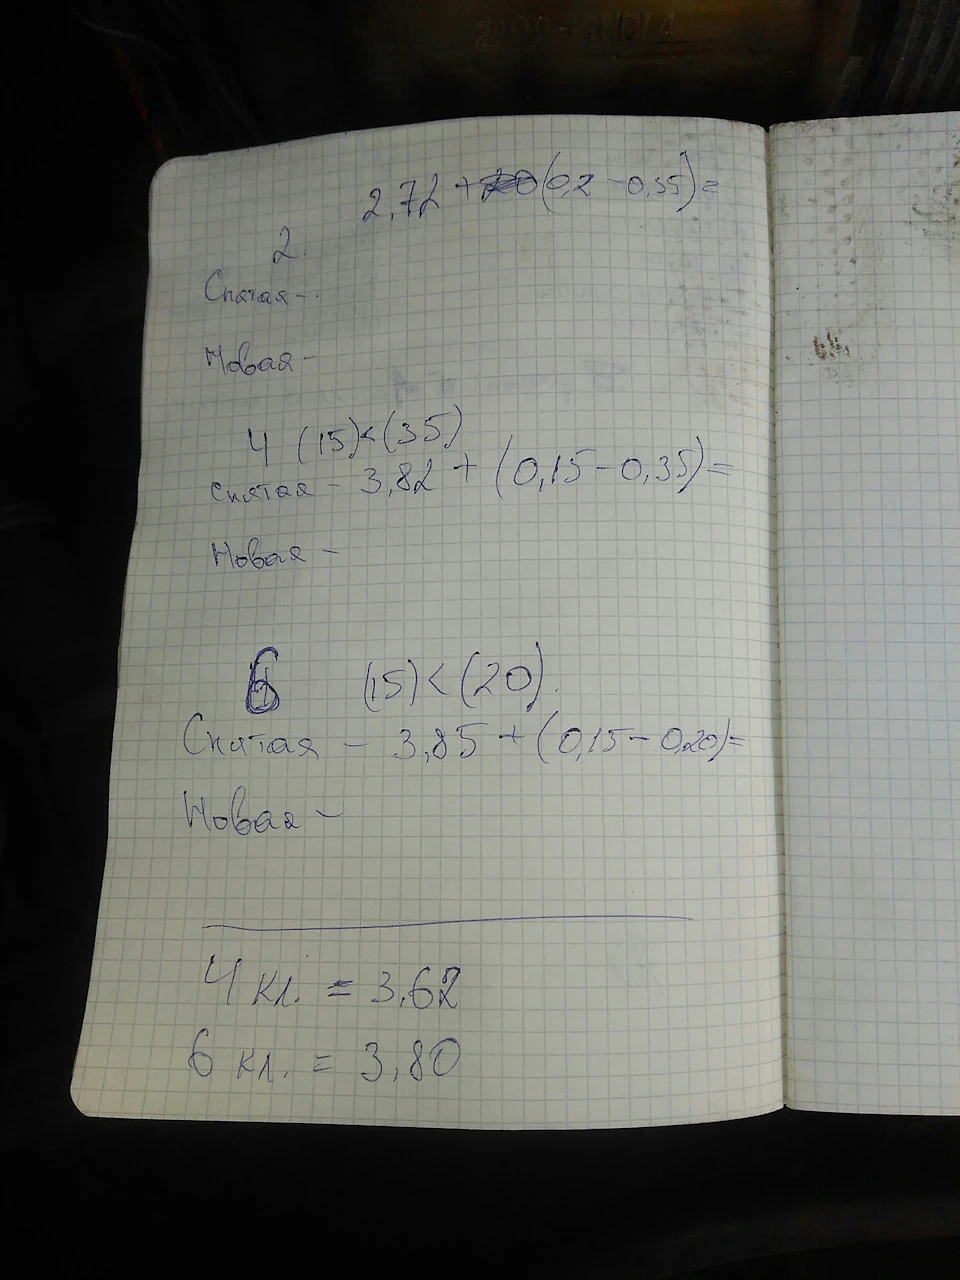 2,72 + (0,2 - 0,35) =
2.
Снятая -
Новая -
4 (15) < (35)
Снятая - 3,82 + (0,15 - 0,35) =
Новая -
6 (15) < (20).
Снятая - 3,85 + (0,15 - 0,20) =
Новая -
4 кл. = 3,62
6 кл. = 3,80